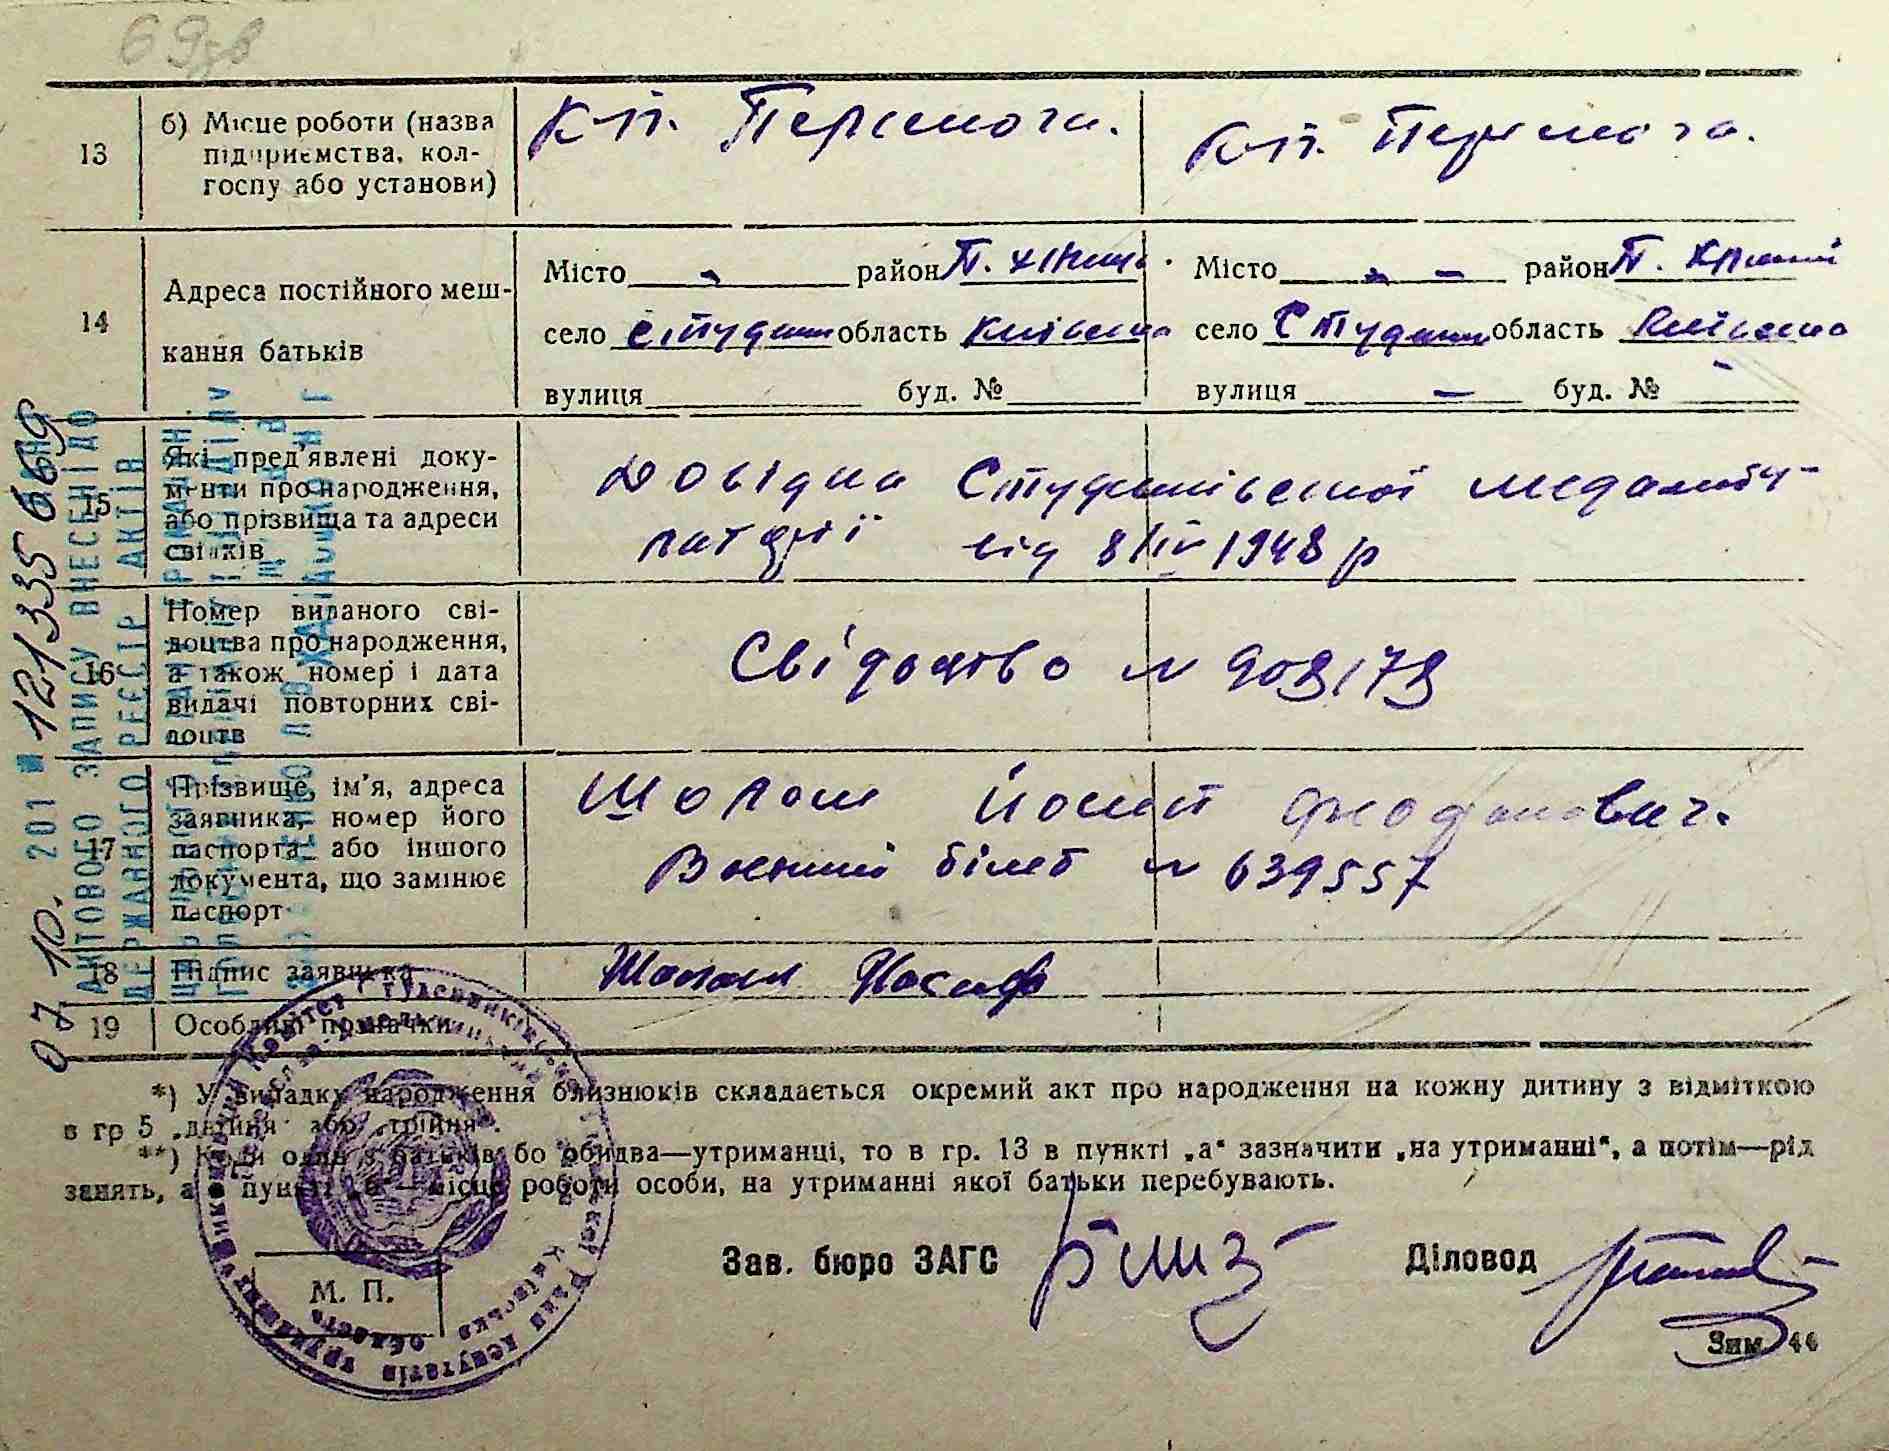 69зв
13 б) Місце роботи (назва
підприємства, кол-
госпу або установи)
К-п. Перемога. К-п. Перемога.
14 Адреса постійного меш-
кання батьків
Місто - район П. Хмел. Місто - - район П.
село Студеник область Київська село Студеник область Київська
вулиця буд. № вулиця - буд. № -
15 Які пред'явлені доку-
менти про народження,
або прізвища та адреси
свідків
Довідка Студениківської
від 8/IV 1948 р
16 Номер виданого сві-
доцтва про народження,
а також номер і дата
видачі повторних сві-
доцтв
Свідоцтво № 909179
17 Прізвище, ім'я, адреса
заявника, номер його
паспорта або іншого
документа, що замінює
паспорт
Шолом Йосип
Воєнний білет № 639557
18 Підпис заявника
Шолом Иосиф
19 Особливі позначки
*) У випадку народження близнюків складається окремий акт про народження на кожну дитину з відміткою
в гр 5 „двійня“ або „трійня“.
**) Коли один з батьків або обидва—утриманці, то в гр. 13 в пункті „а“ зазначити „на утриманні“, а потім—рід
занять, а в пункті „б“—місце роботи особи, на утриманні якої батьки перебувають.
Зав. бюро ЗАГС Діловод
М. П.
Зам. 44
07 10. 201 № 12133566
АКТОВОГО ЗАПИСУ ВНЕСЕНІ ДО
ДЕРЖАВНОГО РЕЄСТР АКТІВ
Київська область